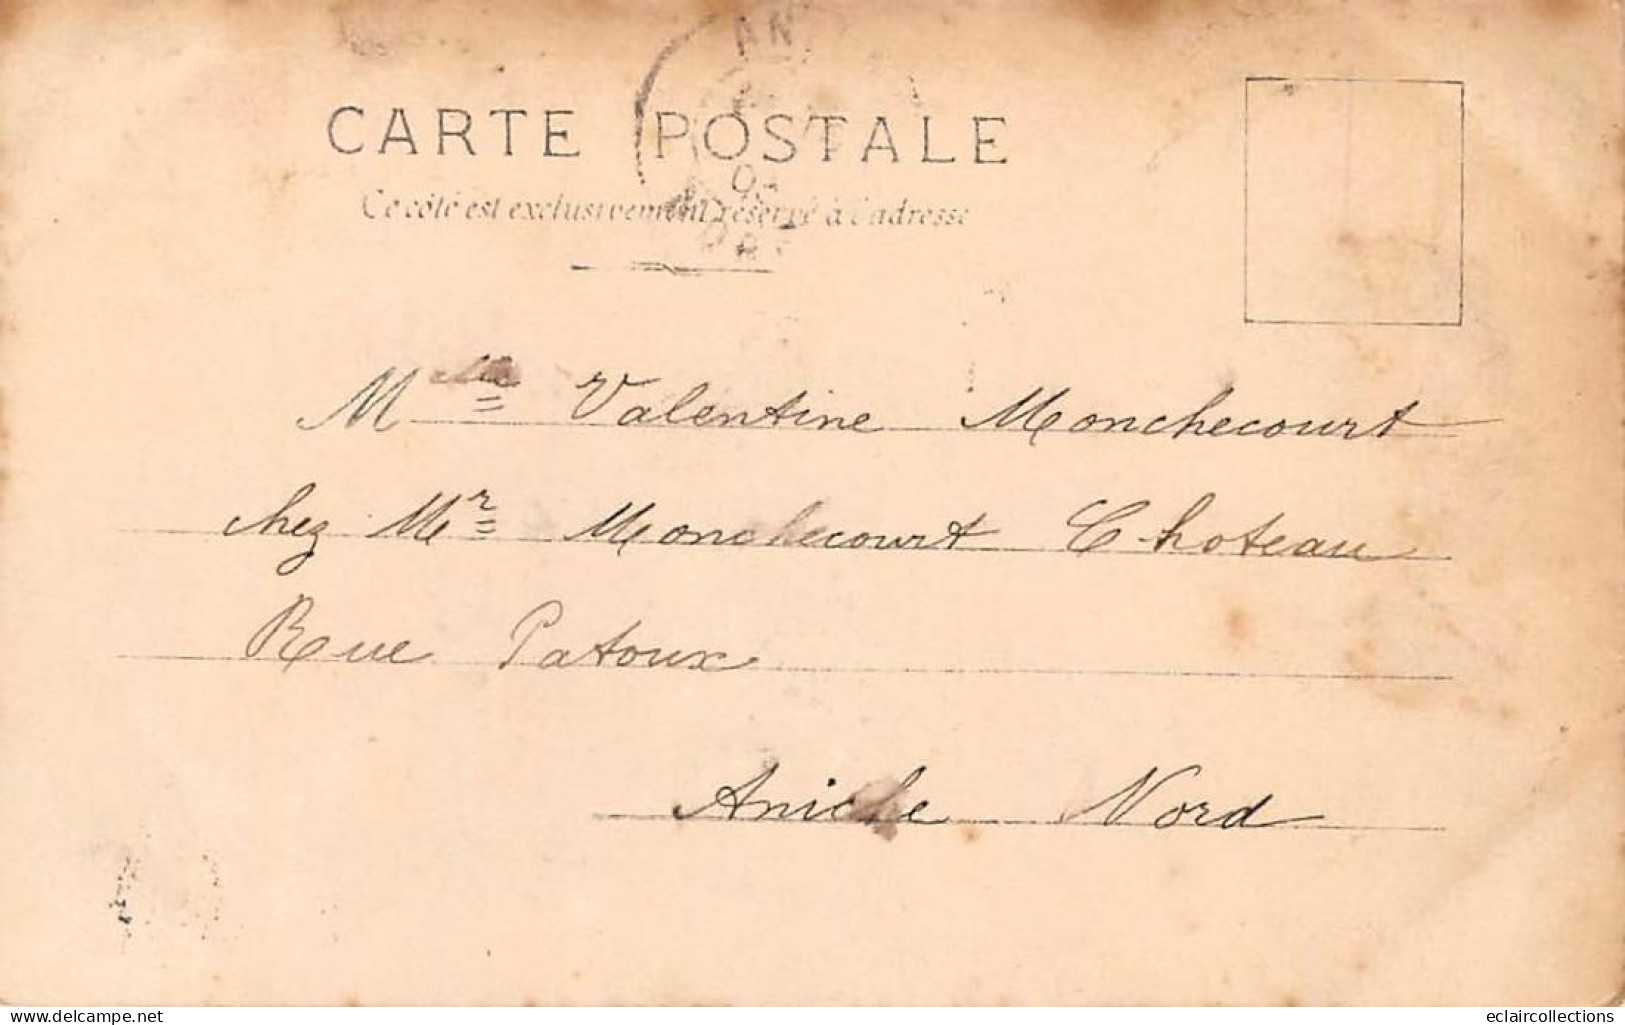 AN
CARTE POSTALE
Ce côté est exclusivement réservé à l'adresse
Mlle Valentine Monchecourt
chez Mr Monchecourt Choteau
Rue Patoux
Aniche Nord
delcampe.net
eclaircollections